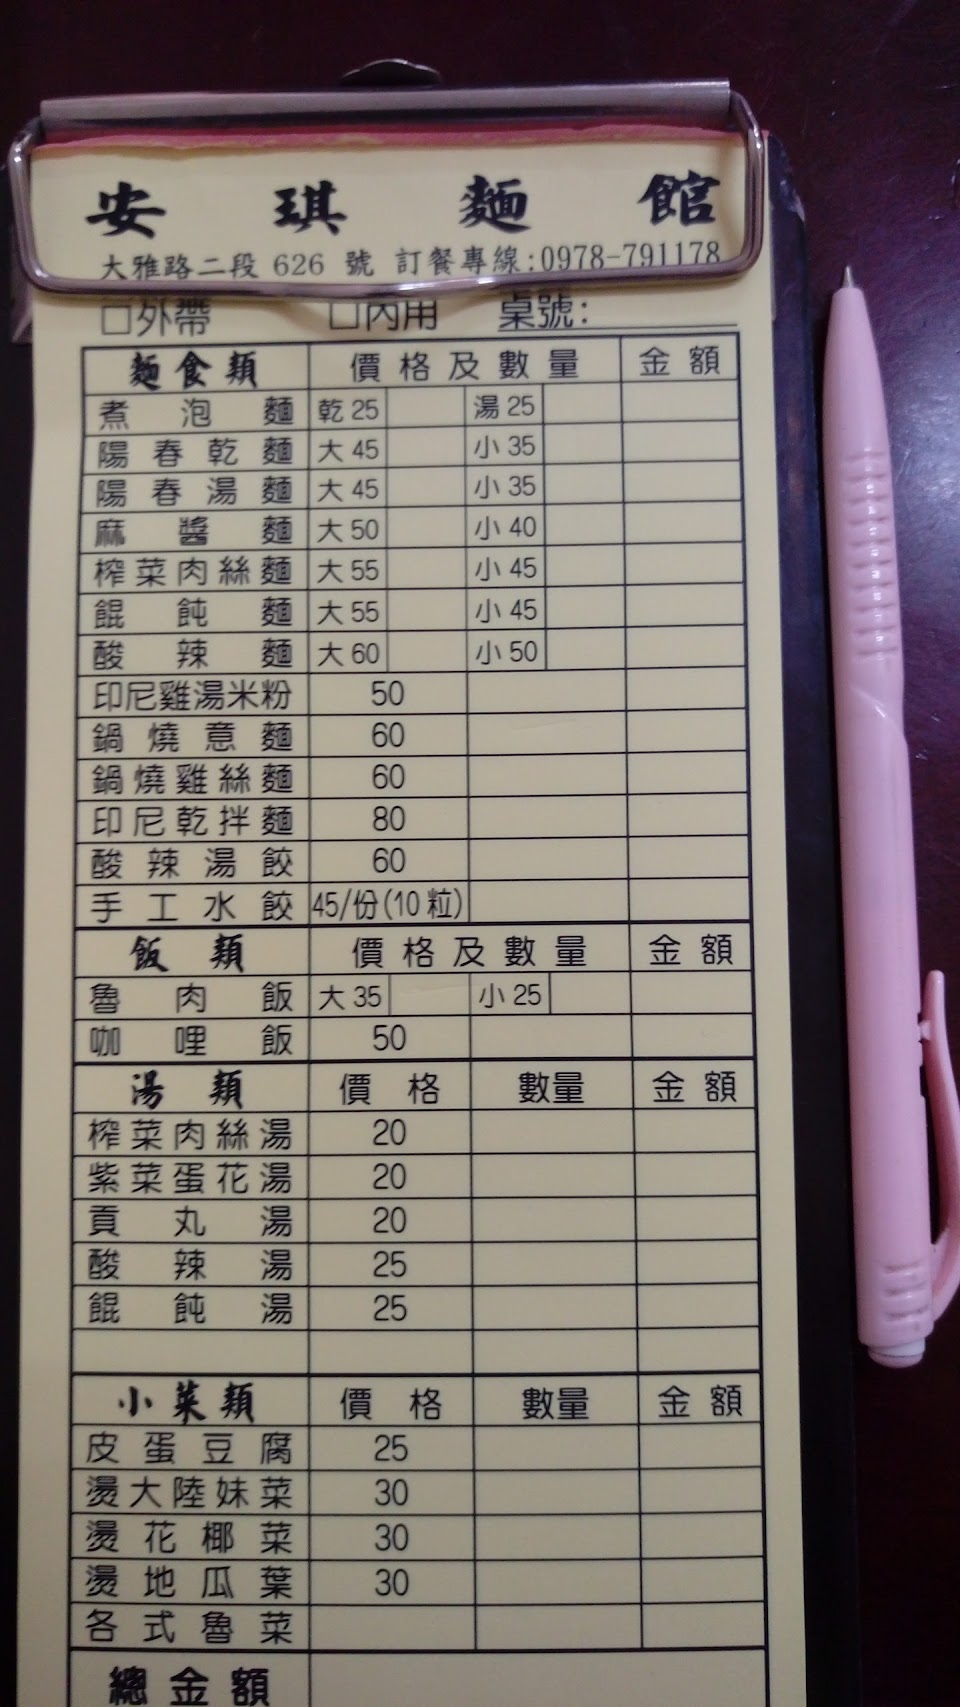 安琪麵館
大雅路二段 626 號 訂餐專線:0978-791178
□外帶 □內用 桌號:
麵食類 價格及數量 金額
煮泡麵 乾25 湯25
陽春乾麵 大45 小35
陽春湯麵 大45 小35
麻醬麵 大50 小40
榨菜肉絲麵 大55 小45
餛飩麵 大55 小45
酸辣麵 大60 小50
印尼雞湯米粉 50
鍋燒意麵 60
鍋燒雞絲麵 60
印尼乾拌麵 80
酸辣湯餃 60
手工水餃 45/份(10粒)
飯類 價格及數量 金額
魯肉飯 大35 小25
咖哩飯 50
湯類 價格 數量 金額
榨菜肉絲湯 20
紫菜蛋花湯 20
貢丸湯 20
酸辣湯 25
餛飩湯 25
小菜類 價格 數量 金額
皮蛋豆腐 25
燙大陸妹菜 30
燙花椰菜 30
燙地瓜葉 30
各式魯菜
總金額